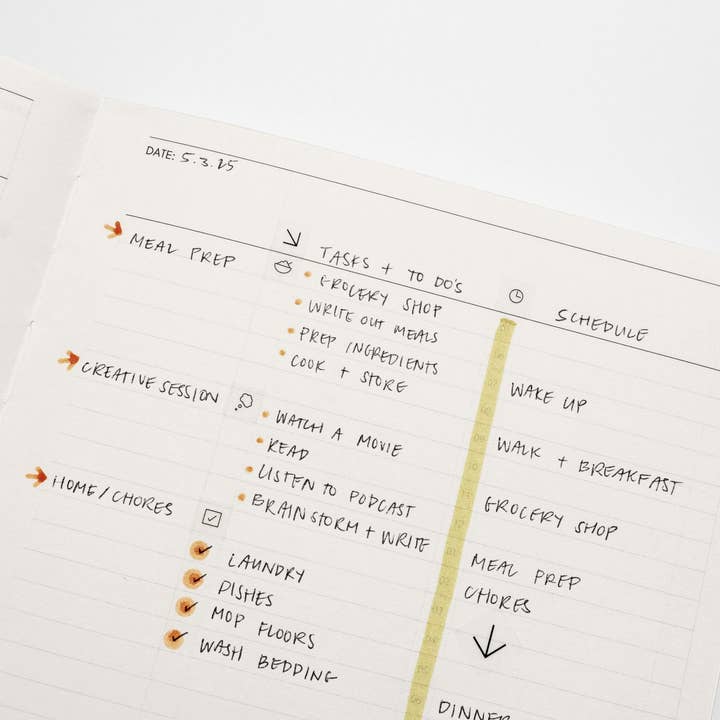 DATE: 5.3.25
MEAL PREP
TASKS + TO DO'S
GROCERY SHOP
WRITE OUT MEALS
PREP INGREDIENTS
COOK + STORE
CREATIVE SESSION
WATCH A MOVIE
READ
LISTEN TO PODCAST
BRAINSTORM + WRITE
HOME/CHORES
LAUNDRY
DISHES
MOP FLOORS
WASH BEDDING
SCHEDULE
WAKE UP
WALK + BREAKFAST
GROCERY SHOP
MEAL PREP
CHORES
DINNER